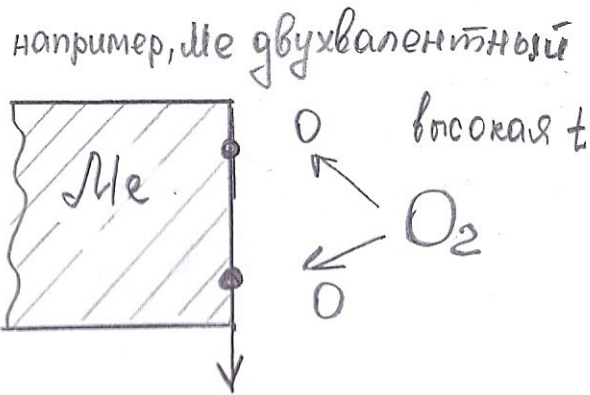 например, Ме двухвалентный
O высокая t
Ме
O₂
O